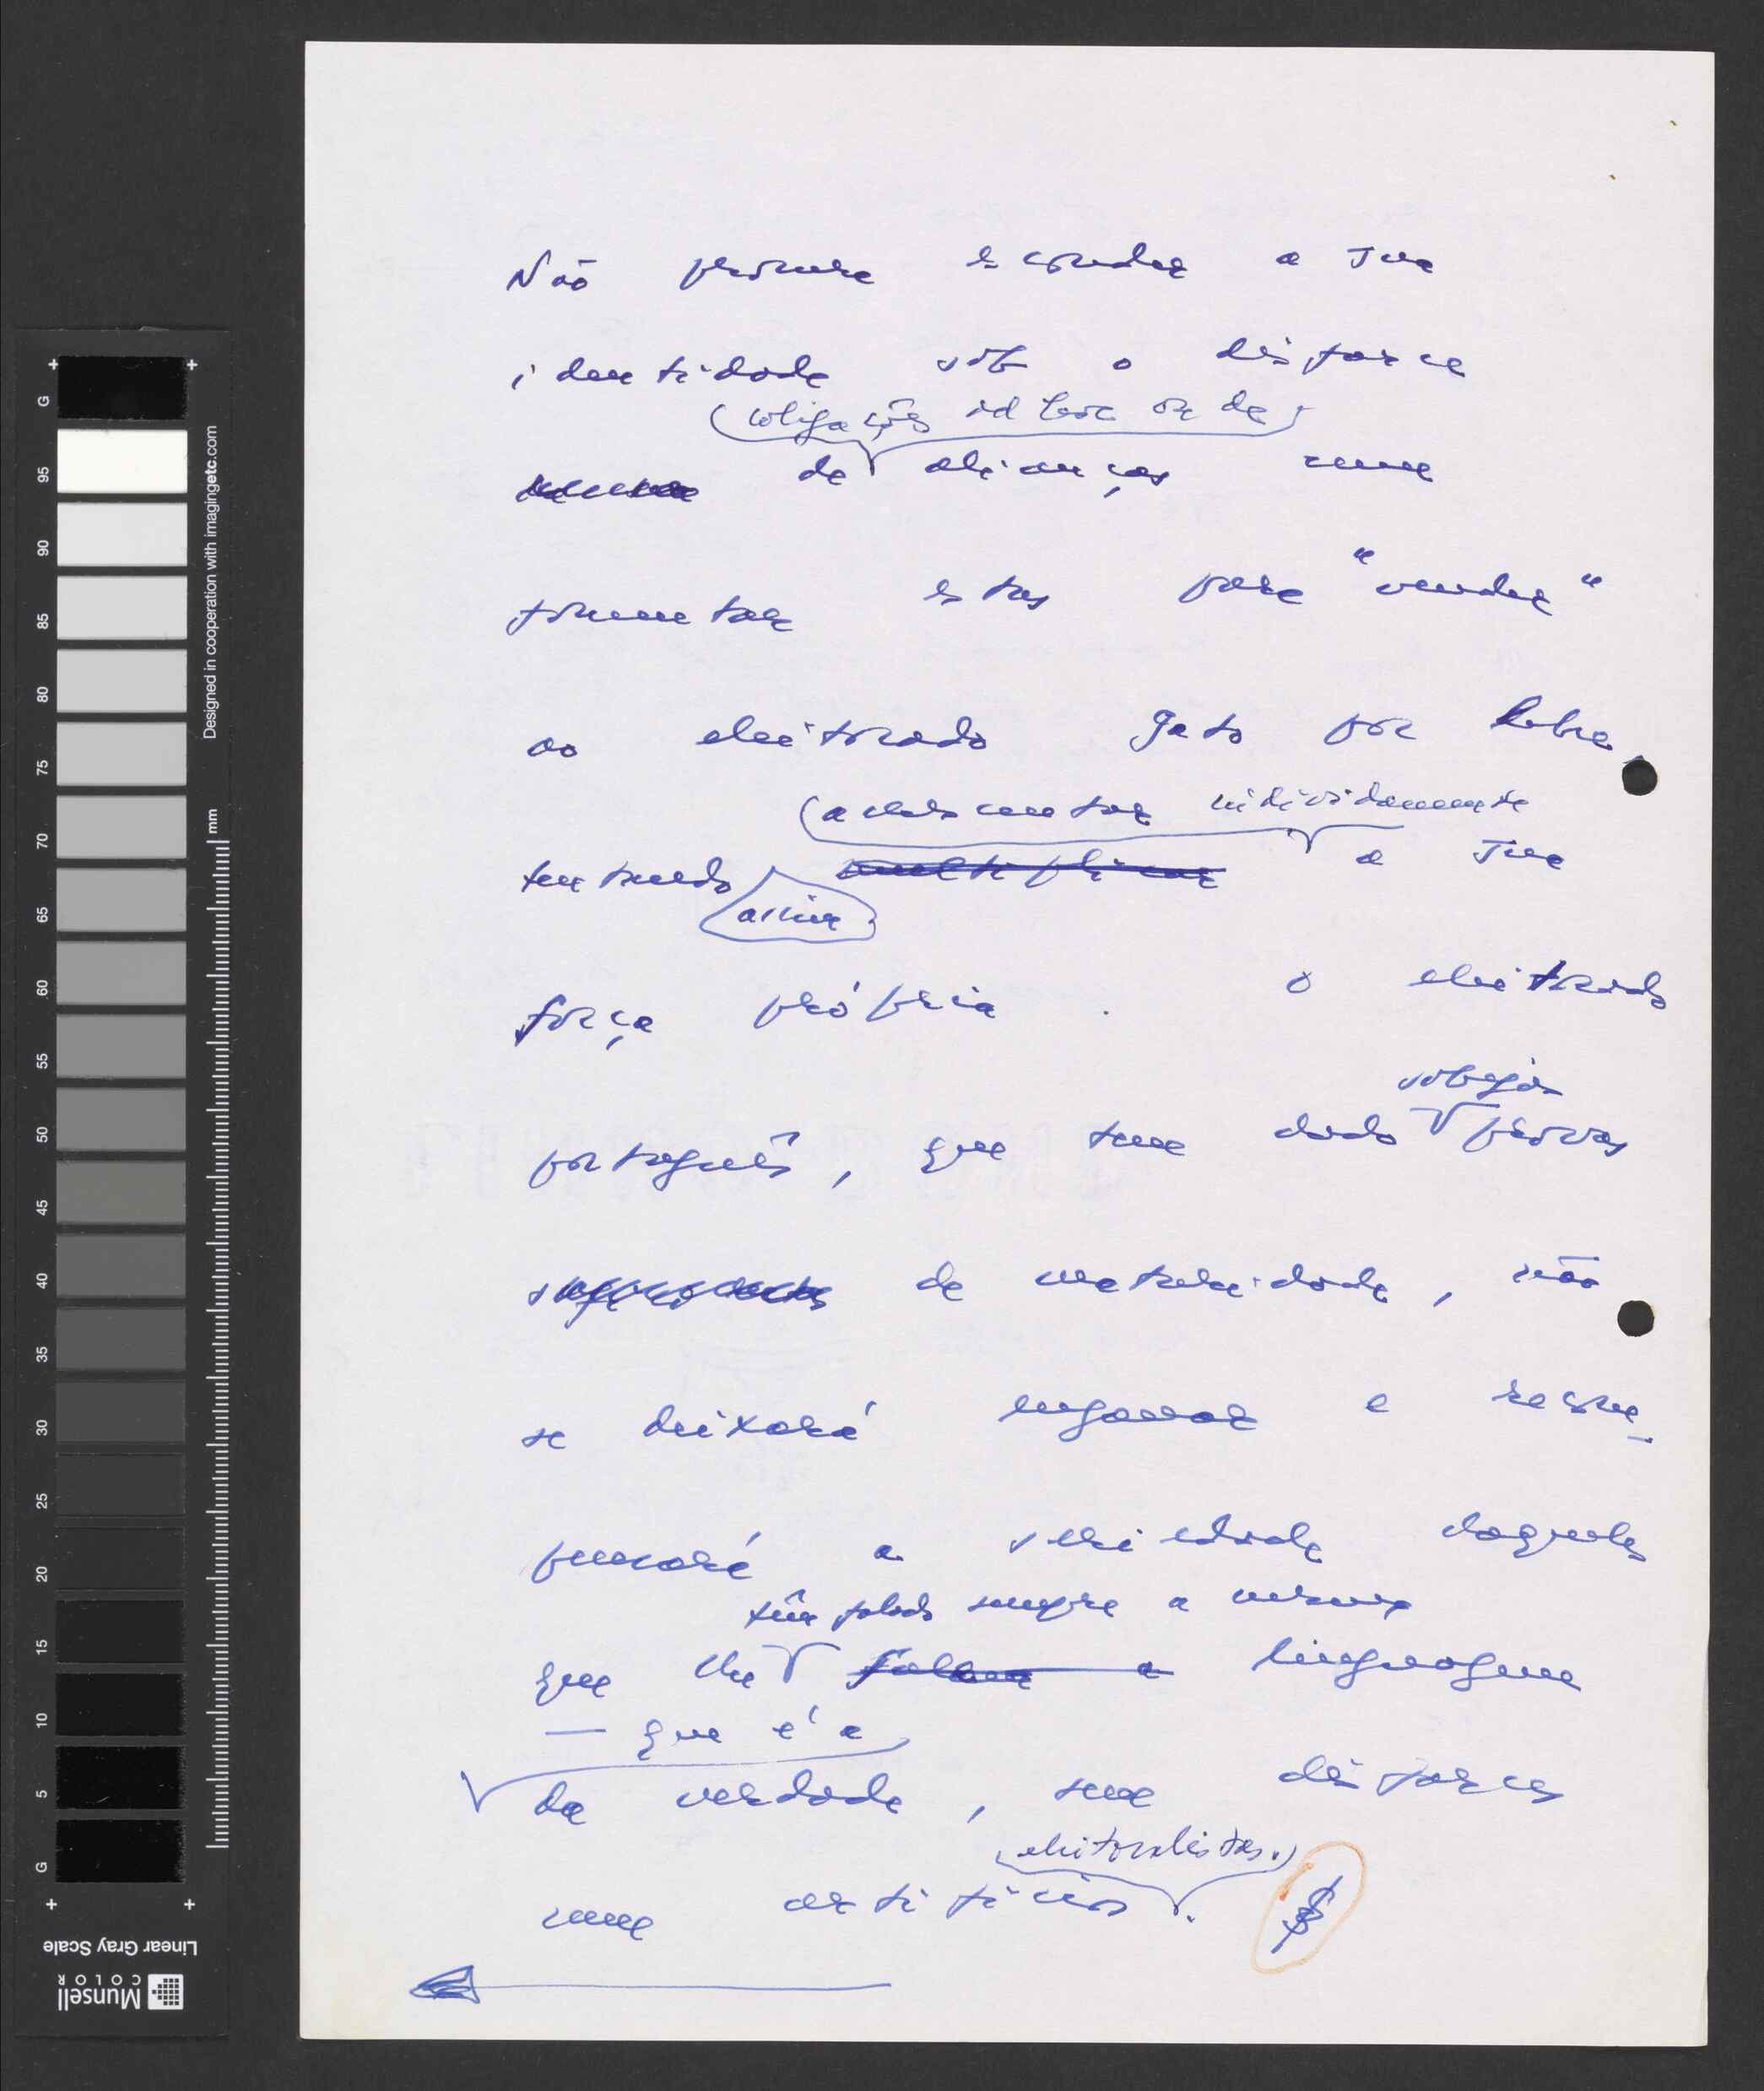 Não procura esconder a sua
identidade sob o disfarce
(coligações ad hoc ou de)
de alianças nem
fomentar estas para "vender"
ao eleitorado gato por lebre,
(acrescentar indevidamente
tentando multiplicar a sua
assim
força própria. O eleitorado
sobejas
português, que tem dado provas
suficientes de maturidade, não
se deixará enganar e recom-
pensará a seriedade daqueles
têm falado sempre a mesma
que lhe falam a linguagem
— que é a
da verdade, sem disfarces
eleitoralistas.)
nem artifícios.
G
95
90
85
80
75
70
65
60
55
50
45
40
35
30
25
20
15
10
5
G
mm
Designed in cooperation with imagingetc.com
Linear Gray Scale
Munsell
COLOR